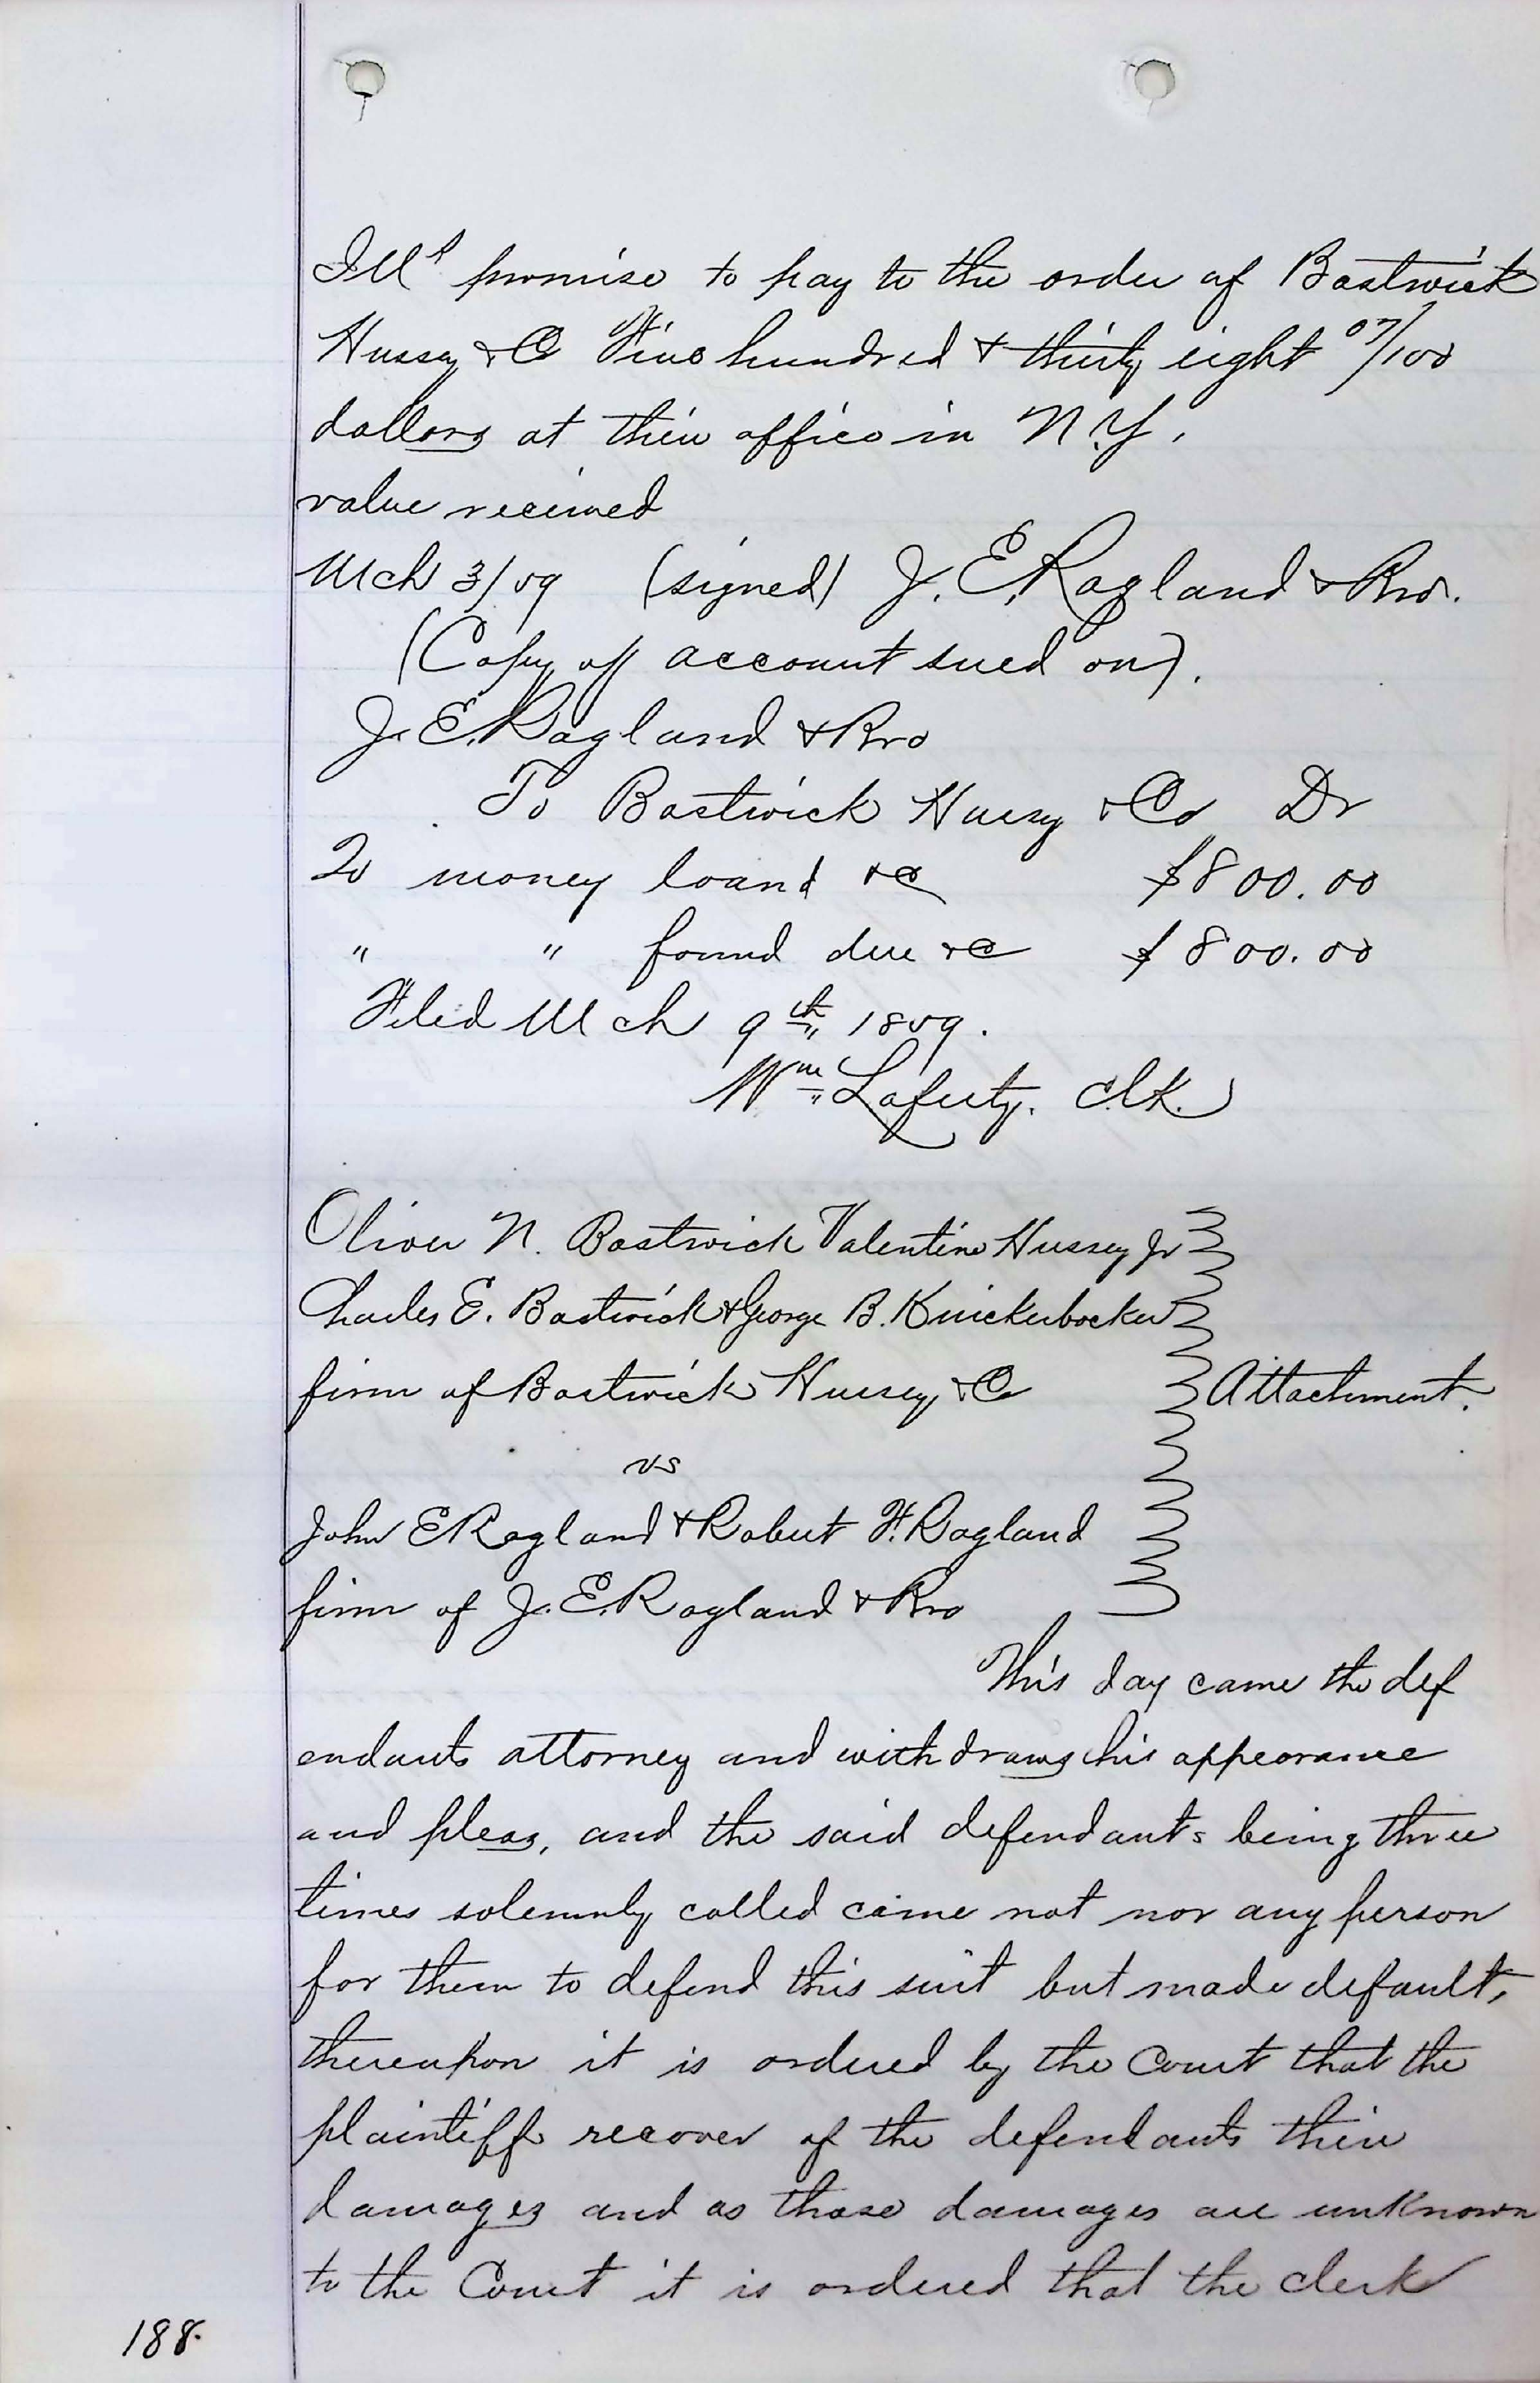 Ills promise to pay to the order of Bostwick
Hussey & Co Five hundred & thirty eight 07/100
dollars at their office in N.Y.
value received
Mch 3/59 (signed) J. E. Ragland & Bro.
(Copy of account sued on).
J. E. Ragland & Bro
To Bostwick Hussey & Co Dr
To money loand &c $800.00
" " found due &c $800.00
Filed Mch 9th 1859.
Wm Laferty. Clk.
Oliver N. Bostwick Valentine Hussey Jr
Charles E. Bostwick & George B. Knickerbocker
firm of Bostwick Hussey & Co Attachment.
vs
John E Ragland & Robert F. Ragland
firm of J. E. Ragland & Bro
This day came the def
endants attorney and withdraws his appearance
and pleas, and the said defendants being three
times solemnly called came not nor any person
for them to defend this suit but made default,
thereupon it is ordered by the Court that the
plaintiffs recover of the defendants their
damages and as those damages are unknown
to the Court it is ordered that the clerk
188.